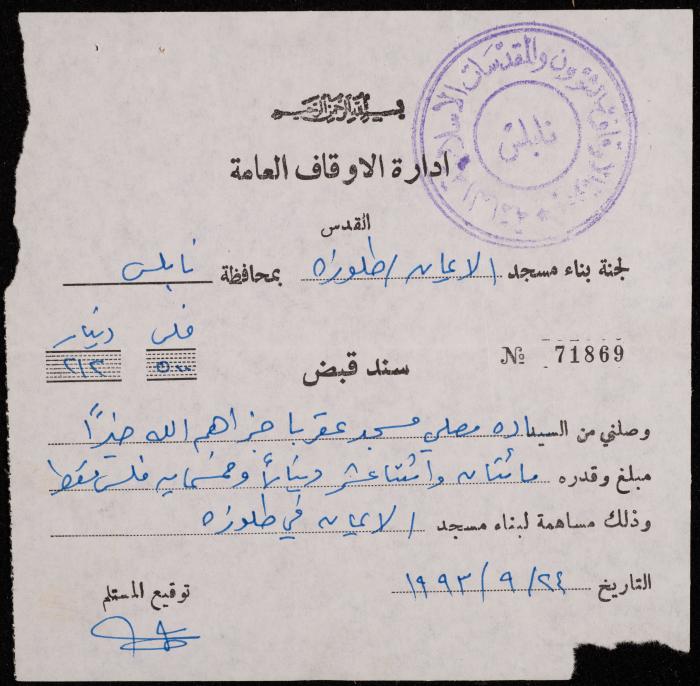 بسم الله الرحمن الرحيم
ادارة الاوقاف العامة
القدس
نابلس
لجنة بناء مسجد الايمان / طلوزه بمحافظة نابلس
فلس دينار
٥٠٠ ٢١٢
سند قبض
№ 71869
وصلني من الساده مصلي مسجد عقربا جزاهم الله خيرًا
مبلغ وقدره مائتان واثنتا عشر دينارًا وخمسمايه فلس فقط
وذلك مساهمة لبناء مسجد الايمان في طلوزه
التاريخ ٢٤/٩/١٩٩٣
توقيع المستلم